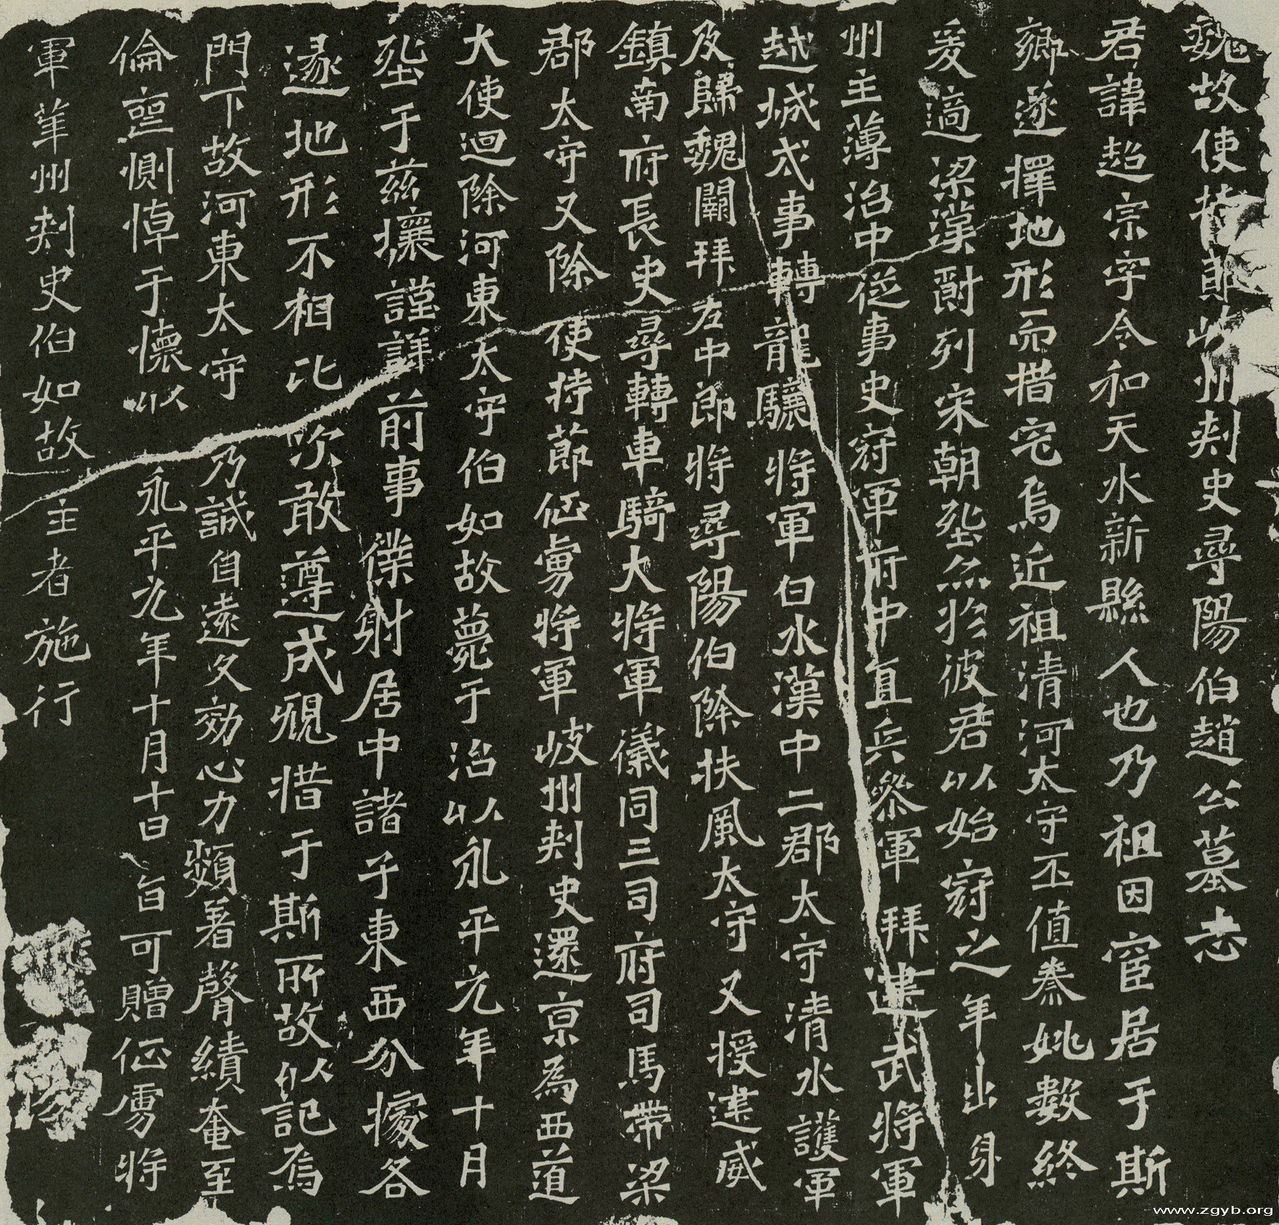 魏故使持節岐州刾史尋陽伯趙公墓志
君諱超宗字令和天水新縣人也乃祖因宦居于斯
鄉遂擇地形而措宅焉近祖清河太守丕值秦姚數終
爰適梁漢爵列宋朝塋亦於彼君以始冠之年出身
州主薄治中從事史冠軍府中直兵參軍拜建武將軍
越城戍事轉龍驤將軍白水漢中二郡太守清水護軍
及歸魏闕拜左中郎將尋陽伯除扶風太守又授建威
鎮南府長史尋轉車騎大將軍儀同三司府司馬帶梁
郡太守又除使持節征虜將軍岐州刾史還京為西道
大使迴除河東太守伯如故薨于治以永平元年十月
塋于茲壤謹詳前事僕射居中諸子東西分據各
遂地形不相比次敢遵成規措于斯所故以記焉
門下故河東太守乃誠自遠文効心力頻著聲績奄至
倫喪惻悼于懷以永平元年十月十日旨可贈征虜將
軍華州刾史伯如故主者施行
www.zgyb.org